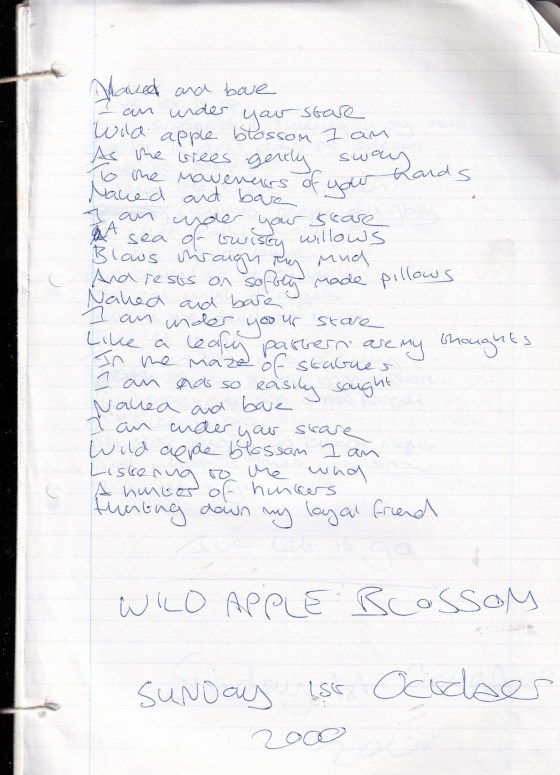 Naked and bare
I am under your stare
Wild apple blossom I am
As the trees gently sway
To the movements of your hands
Naked and bare
I am under your stare
A sea of twisty willows
Blows through my mind
And rests on softly made pillows
Naked and bare
I am under your stare
Like a leafy pattern are my thoughts
In the maze of statues
I am not so easily sought
Naked and bare
I am under your stare
Wild apple blossom I am
Listening to the wind
A hunter of hunters
Hunting down my loyal friend
WILD APPLE BLOSSOM
SUNDAY 1st October
2000